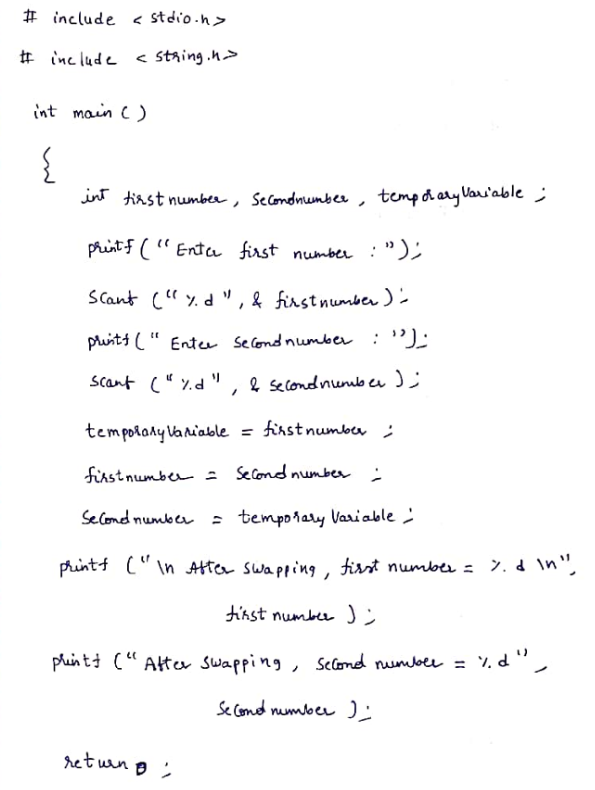 # include < stdio.h>
# include < string.h>
int main ( )
{
int firstnumber, Secondnumber, temporaryVariable ;
printf ( " Enter first number : " ) ;
Scanf ( " %d ", & firstnumber ) ;
printf ( " Enter Second number : " ) ;
Scanf ( " %d ", & secondnumber ) ;
temporaryVariable = firstnumber ;
firstnumber = Second number ;
Second number = temporary Variable ;
printf ( " \n After Swapping, first number = %. d \n",
first number ) ;
printf ( " After Swapping, Second number = %. d ",
Second number ) ;
return 0 ;